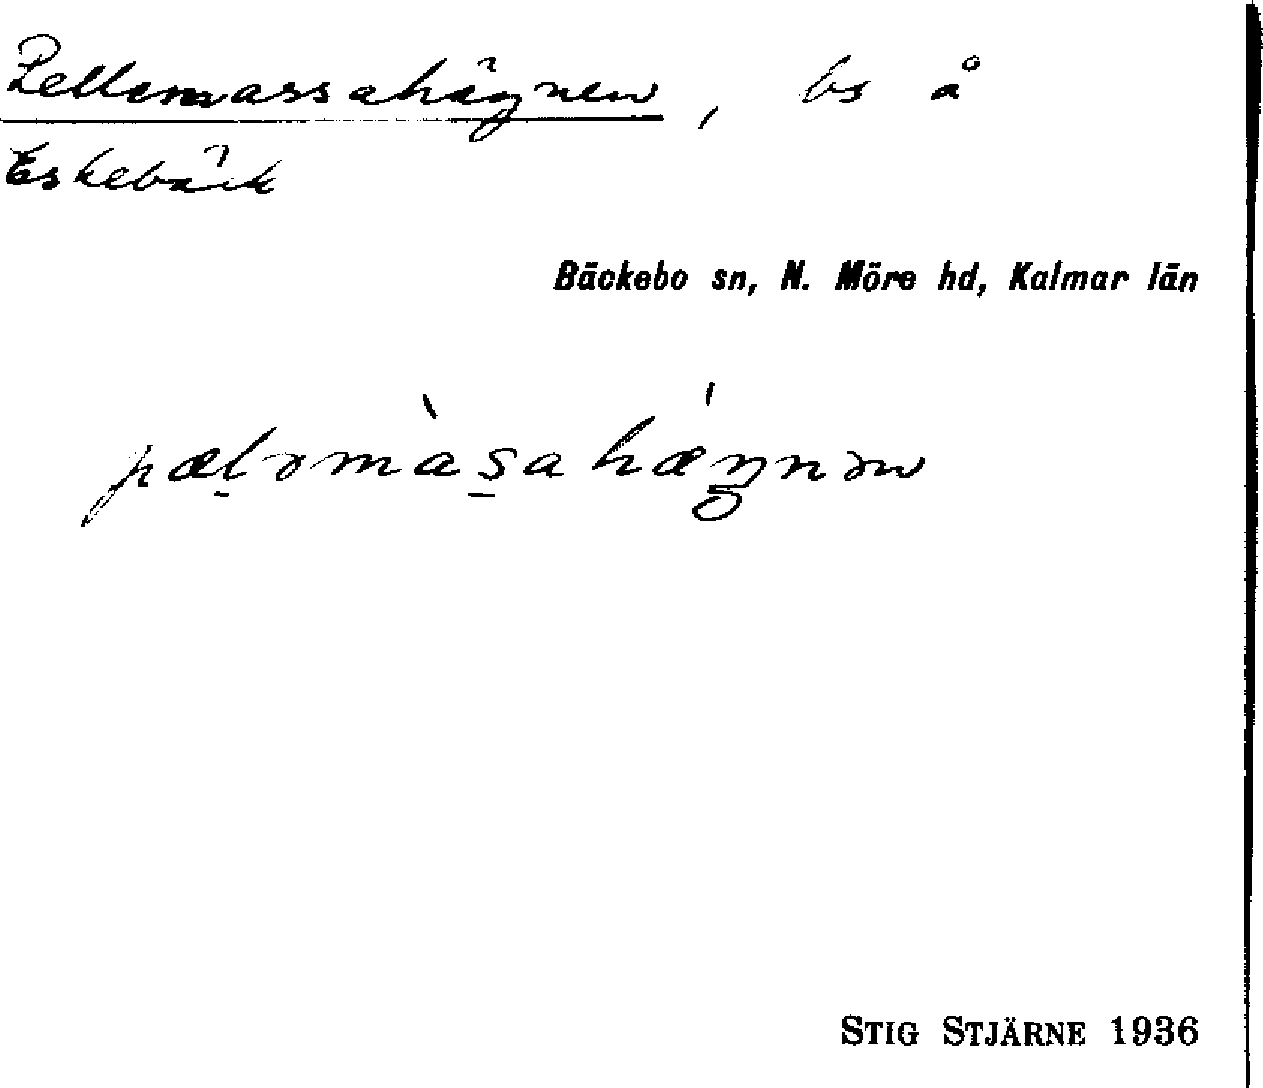 Pellemassahägnen, bs å
Eskebäck
Bäckebo sn, N. Möre hd, Kalmar län
STIG STJÄRNE 1936